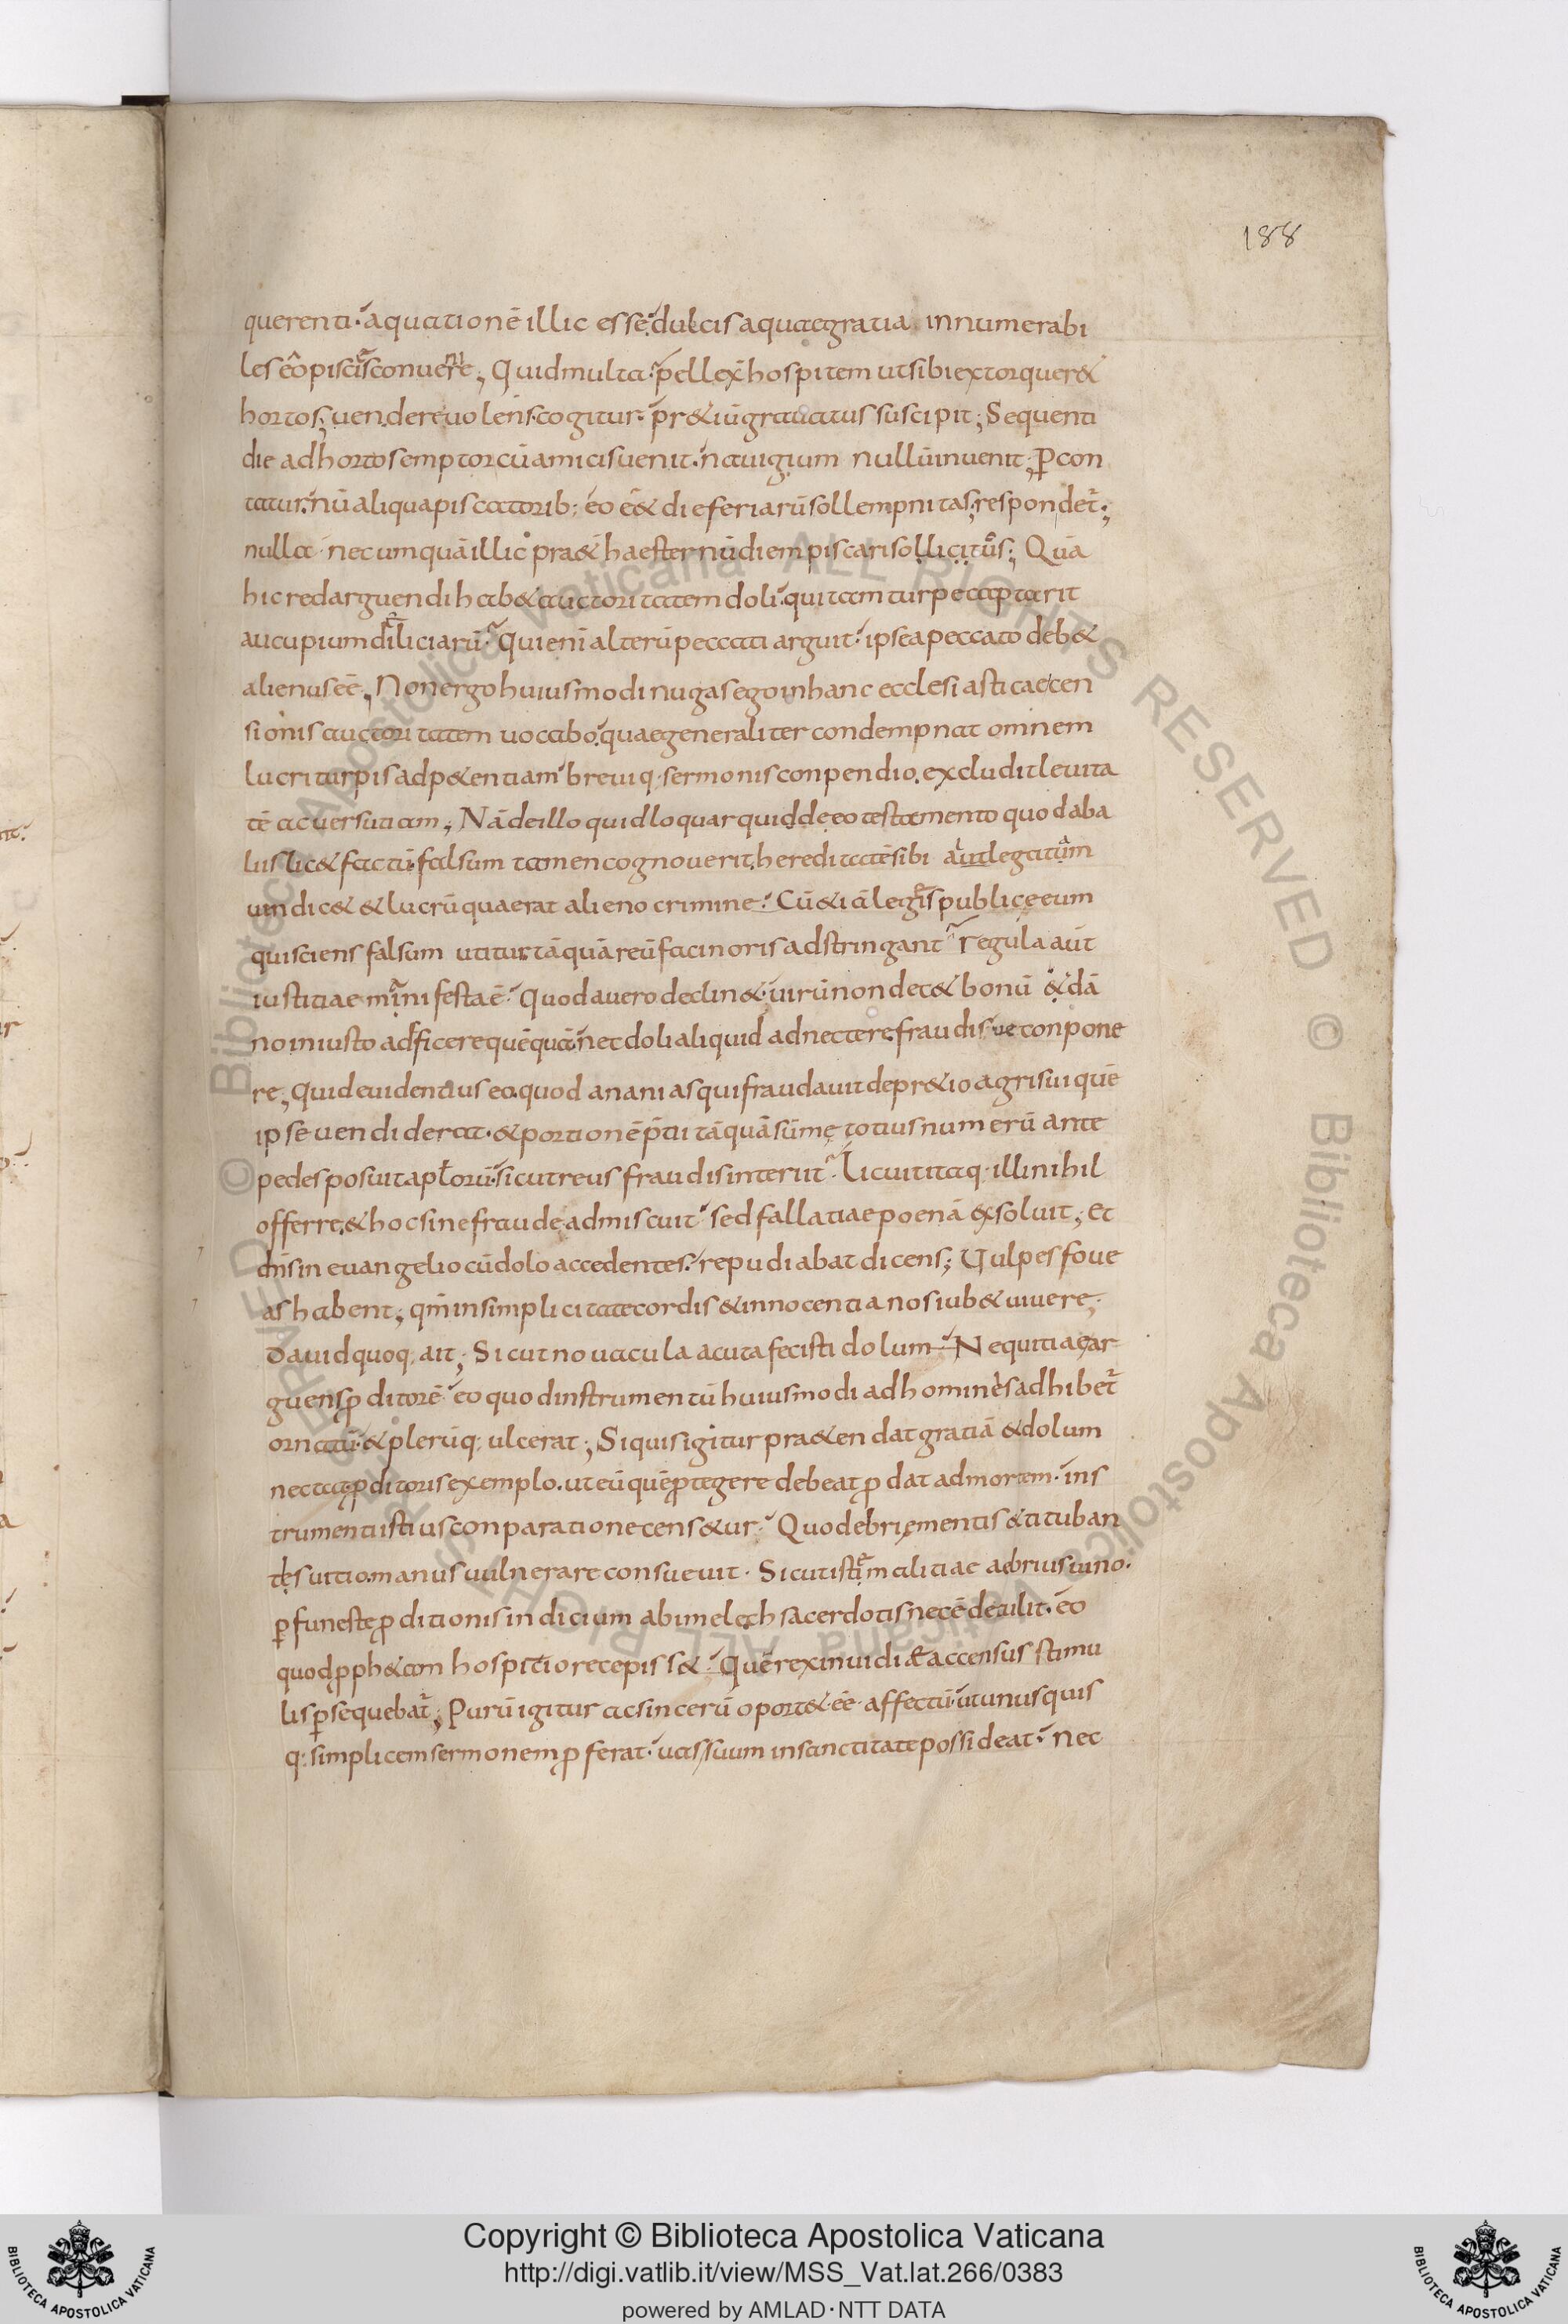 188
querenti· aquationē illic esse· dulcis aquae gratia innumerabi
les eo piscis convenere; Quid multa· pellex hospitem ut sibi extorquer&
hortos; vendere volens cogitur· pr&iū gravatus suscipit; Sequenti
die ad hortos emptor cū amicis venit· navigium nullū invenit; Percon
tatur nū aliqua piscatorib; eo ē& die feriarū sollempnitas; respondet̄;
nulla· nec umquā illic pra&er haesternū diem piscari solliciti s; Quā
hic redarguendi hab& auctoritatem doli· qui tam turpe captarit
aucupium diliciarū· Qui enī alterū peccati arguit· ipse a peccato deb&
alienus eē; Non ergo huiusmodi nugas ego in hanc ecclesiasticae cen
sionis auctoritatem vocabo· quae generaliter condempnat omnem
lucri turpis adp&entiam· breviq· sermonis conpendio excludit levita
tē ac versutiam; Nā de illo quid loquar qui de eo testamento quod ab a
liis lic& factū· falsum tamen cognoverit· hereditatē sibi aut legatum
vindic& & lucrū quaerat alieno crimine· Cū &iā leges publice eum
qui sciens falsum utitur tāquā reū facinoris adstringant· regula aūt
iustitiae manifesta ē· Quod a vero declin&· virū non dec& bonū & dā
no iniusto adficere quēquā· nec doli aliquid adnectere fraudis ve conpone
re; Quid evidentius eo quod ananias qui fraudavit de pr&io agri sui quē
ipse vendiderat· & portionē p̄tii tāquā sūmę totius numerū ante
pedes posuit apl̄orū· sicut reus fraudis interiit· Licuit itaq· illi nihil
offerre· & hoc sine fraude admisit· sed fallatiae poenā exsoluit; Et
dn̄s in evangelio cū dolo accedentes· repudiabat dicens; Vulpes fove
as habent; qm̄ in simplicitate cordis & innocentia nos iub& vivere;
David quoq· ait; Sicut novacula acuta fecisti dolum· Nequitiae ar
guens proditorē· eo quod instrumentū huiusmodi ad hominis adhibet̄
ornatū· & plerūq· ulcerat; Si quis igitur pra&endat gratiā & dolum
nectat proditoris exemplo· ut eū quē protegere debeat prodat ad mortem· ins
trumenti istius conparatione cens&ur· Quod ebrię mentis & tituban
tis vitio manus vulnerare consuevit· Sicut iste malitiae aebrius vino·
per funeste proditionis indicium abimelech sacerdotis necē detulit· eo
quod proph&am hospitio recepiss&· Quē rex invidiae accensus stimu
lis persequebat̄; Purū igitur ac sincerū oport& eē affectū· ut unusquis
q· simplicem sermonem proferat· vas suum in sanctitate possideat· nec
Copyright © Biblioteca Apostolica Vaticana
http://digi.vatlib.it/view/MSS_Vat.lat.266/0383
powered by AMLAD·NTT DATA